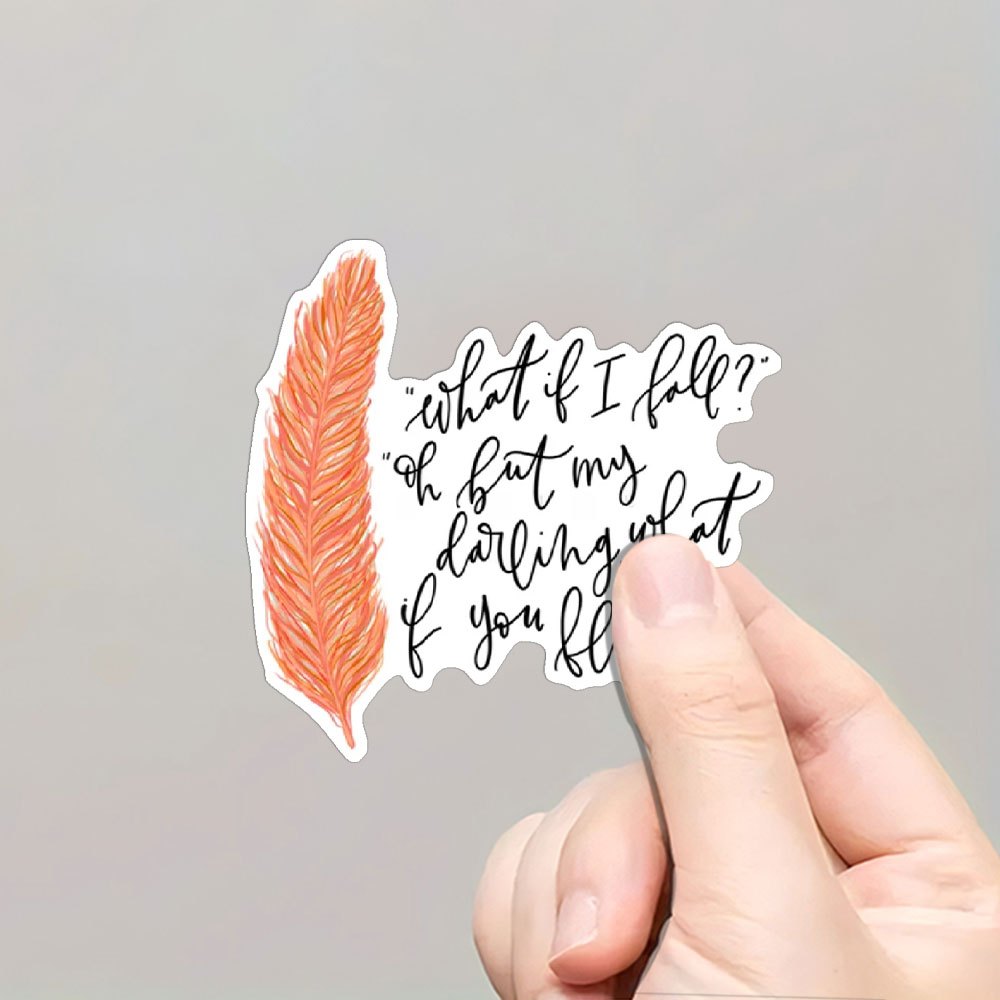 "what if I fall?"
"oh but my
darling what
if you fl